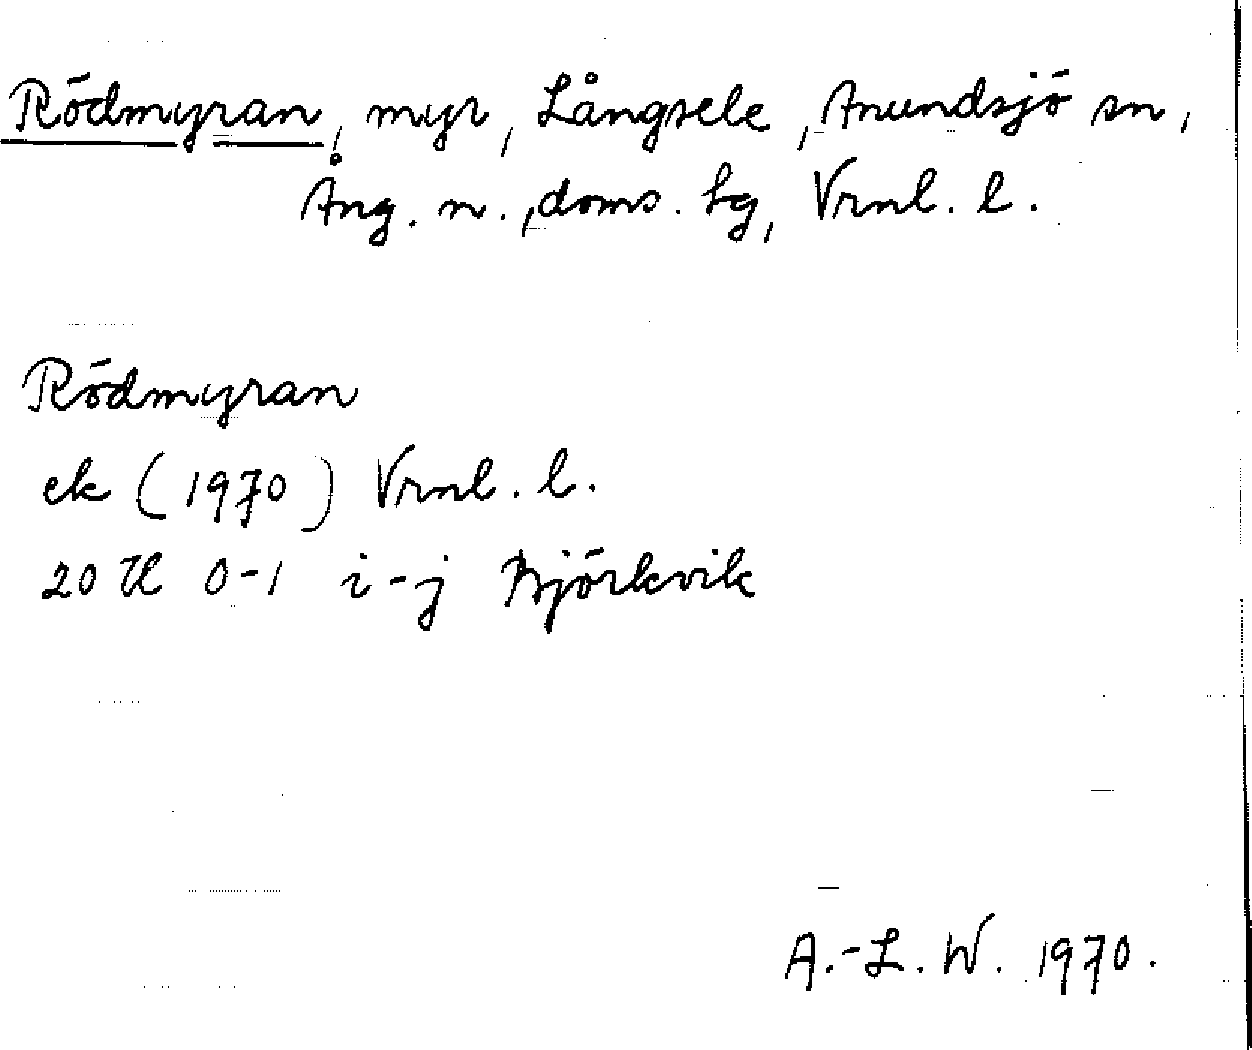 Rödmyran, myr, Långsele, Anundsjö sn,
Ång. n., doms. hg, Vrnl. l.
Rödmyran
ek (1970) Vrnl. l.
20 H 0-1 i-j Björkvik
A.-L. W. 1970.